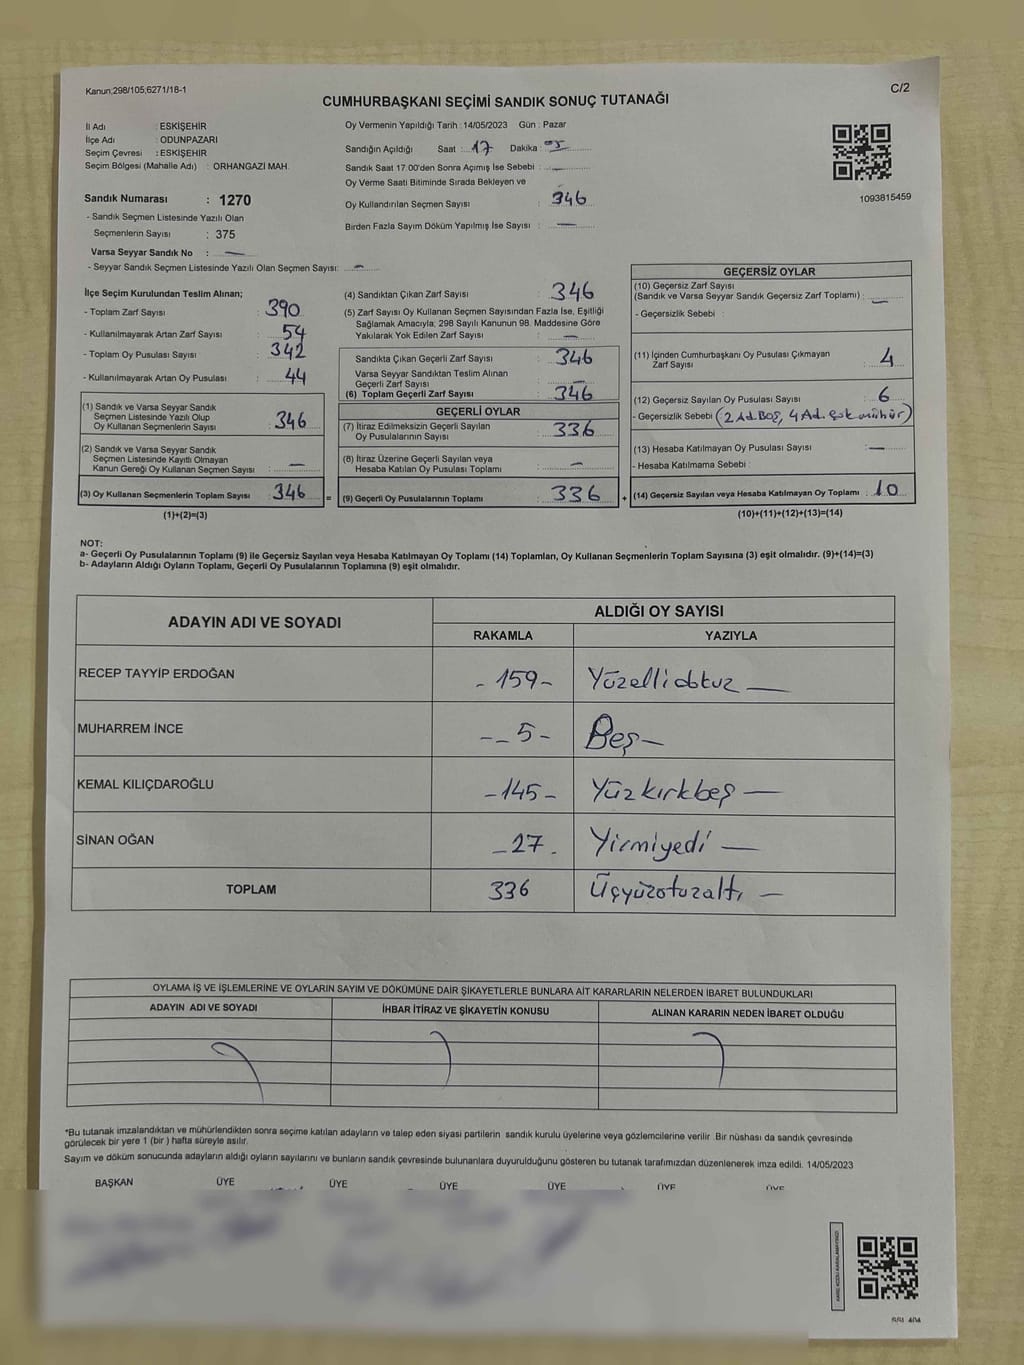 Kanun;298/105;6271/18-1
C/2
CUMHURBAŞKANI SEÇİMİ SANDIK SONUÇ TUTANAĞI
İl Adı : ESKİŞEHİR
İlçe Adı : ODUNPAZARI
Seçim Çevresi : ESKİŞEHİR
Seçim Bölgesi (Mahalle Adı) : ORHANGAZİ MAH.
Sandık Numarası : 1270
- Sandık Seçmen Listesinde Yazılı Olan
Seçmenlerin Sayısı : 375
Varsa Seyyar Sandık No : —
- Seyyar Sandık Seçmen Listesinde Yazılı Olan Seçmen Sayısı: —
Oy Vermenin Yapıldığı Tarih : 14/05/2023 Gün : Pazar
Sandığın Açıldığı Saat : 17 Dakika : 05
Sandık Saat 17.00'den Sonra Açımış İse Sebebi : —
Oy Verme Saati Bitiminde Sırada Bekleyen ve
Oy Kullandırılan Seçmen Sayısı : 346
Birden Fazla Sayım Döküm Yapılmış İse Sayısı : —
1093815459
İlçe Seçim Kurulundan Teslim Alınan;
- Toplam Zarf Sayısı : 390
- Kullanılmayarak Artan Zarf Sayısı : 54
- Toplam Oy Pusulası Sayısı : 342
- Kullanılmayarak Artan Oy Pusulası : 44
(1) Sandık ve Varsa Seyyar Sandık
Seçmen Listesinde Yazılı Olup
Oy Kullanan Seçmenlerin Sayısı : 346
(2) Sandık ve Varsa Seyyar Sandık
Seçmen Listesinde Kayıtlı Olmayan
Kanun Gereği Oy Kullanan Seçmen Sayısı : —
(3) Oy Kullanan Seçmenlerin Toplam Sayısı : 346 =
(1)+(2)=(3)
(4) Sandıktan Çıkan Zarf Sayısı : 346
(5) Zarf Sayısı Oy Kullanan Seçmen Sayısından Fazla İse, Eşitliği
Sağlamak Amacıyla; 298 Sayılı Kanunun 98. Maddesine Göre
Yakılarak Yok Edilen Zarf Sayısı : —
Sandıkta Çıkan Geçerli Zarf Sayısı : 346
Varsa Seyyar Sandıktan Teslim Alınan
Geçerli Zarf Sayısı : —
(6) Toplam Geçerli Zarf Sayısı : 346
GEÇERLİ OYLAR
(7) İtiraz Edilmeksizin Geçerli Sayılan
Oy Pusulalarının Sayısı : 336
(8) İtiraz Üzerine Geçerli Sayılan veya
Hesaba Katılan Oy Pusulası Toplamı : —
(9) Geçerli Oy Pusulalarının Toplamı : 336 +
GEÇERSİZ OYLAR
(10) Geçersiz Zarf Sayısı
(Sandık ve Varsa Seyyar Sandık Geçersiz Zarf Toplamı) : —
- Geçersizlik Sebebi :
(11) İçinden Cumhurbaşkanı Oy Pusulası Çıkmayan
Zarf Sayısı : 4
(12) Geçersiz Sayılan Oy Pusulası Sayısı : 6
- Geçersizlik Sebebi (2 Ad. Boş, 4 Ad. çok mühür)
(13) Hesaba Katılmayan Oy Pusulası Sayısı : —
- Hesaba Katılmama Sebebi :
(14) Geçersiz Sayılan veya Hesaba Katılmayan Oy Toplamı : 10
(10)+(11)+(12)+(13)=(14)
NOT:
a- Geçerli Oy Pusulalarının Toplamı (9) ile Geçersiz Sayılan veya Hesaba Katılmayan Oy Toplamı (14) Toplamları, Oy Kullanan Seçmenlerin Toplam Sayısına (3) eşit olmalıdır. (9)+(14)=(3)
b- Adayların Aldığı Oyların Toplamı, Geçerli Oy Pusulalarının Toplamına (9) eşit olmalıdır.
ADAYIN ADI VE SOYADI ALDIĞI OY SAYISI
RAKAMLA YAZIYLA
RECEP TAYYİP ERDOĞAN - 159 - Yüzellidokuz —
MUHARREM İNCE -- 5 - Beş —
KEMAL KILIÇDAROĞLU - 145 - Yüzkırkbeş —
SİNAN OĞAN - 27 - Yirmiyedi —
TOPLAM 336 Üçyüzotuzaltı —
OYLAMA İŞ VE İŞLEMLERİNE VE OYLARIN SAYIM VE DÖKÜMÜNE DAİR ŞİKAYETLERLE BUNLARA AİT KARARLARIN NELERDEN İBARET BULUNDUKLARI
ADAYIN ADI VE SOYADI İHBAR İTİRAZ VE ŞİKAYETİN KONUSU ALINAN KARARIN NEDEN İBARET OLDUĞU
*Bu tutanak imzalandıktan ve mühürlendikten sonra seçime katılan adayların ve talep eden siyasi partilerin sandık kurulu üyelerine veya gözlemcilerine verilir. Bir nüshası da sandık çevresinde
görülecek bir yere 1 (bir ) hafta süreyle asılır.
Sayım ve döküm sonucunda adayların aldığı oyların sayılarını ve bunların sandık çevresinde bulunanlara duyurulduğunu gösteren bu tutanak tarafımızdan düzenlenerek imza edildi. 14/05/2023
BAŞKAN ÜYE ÜYE ÜYE ÜYE ÜYE ÜYE